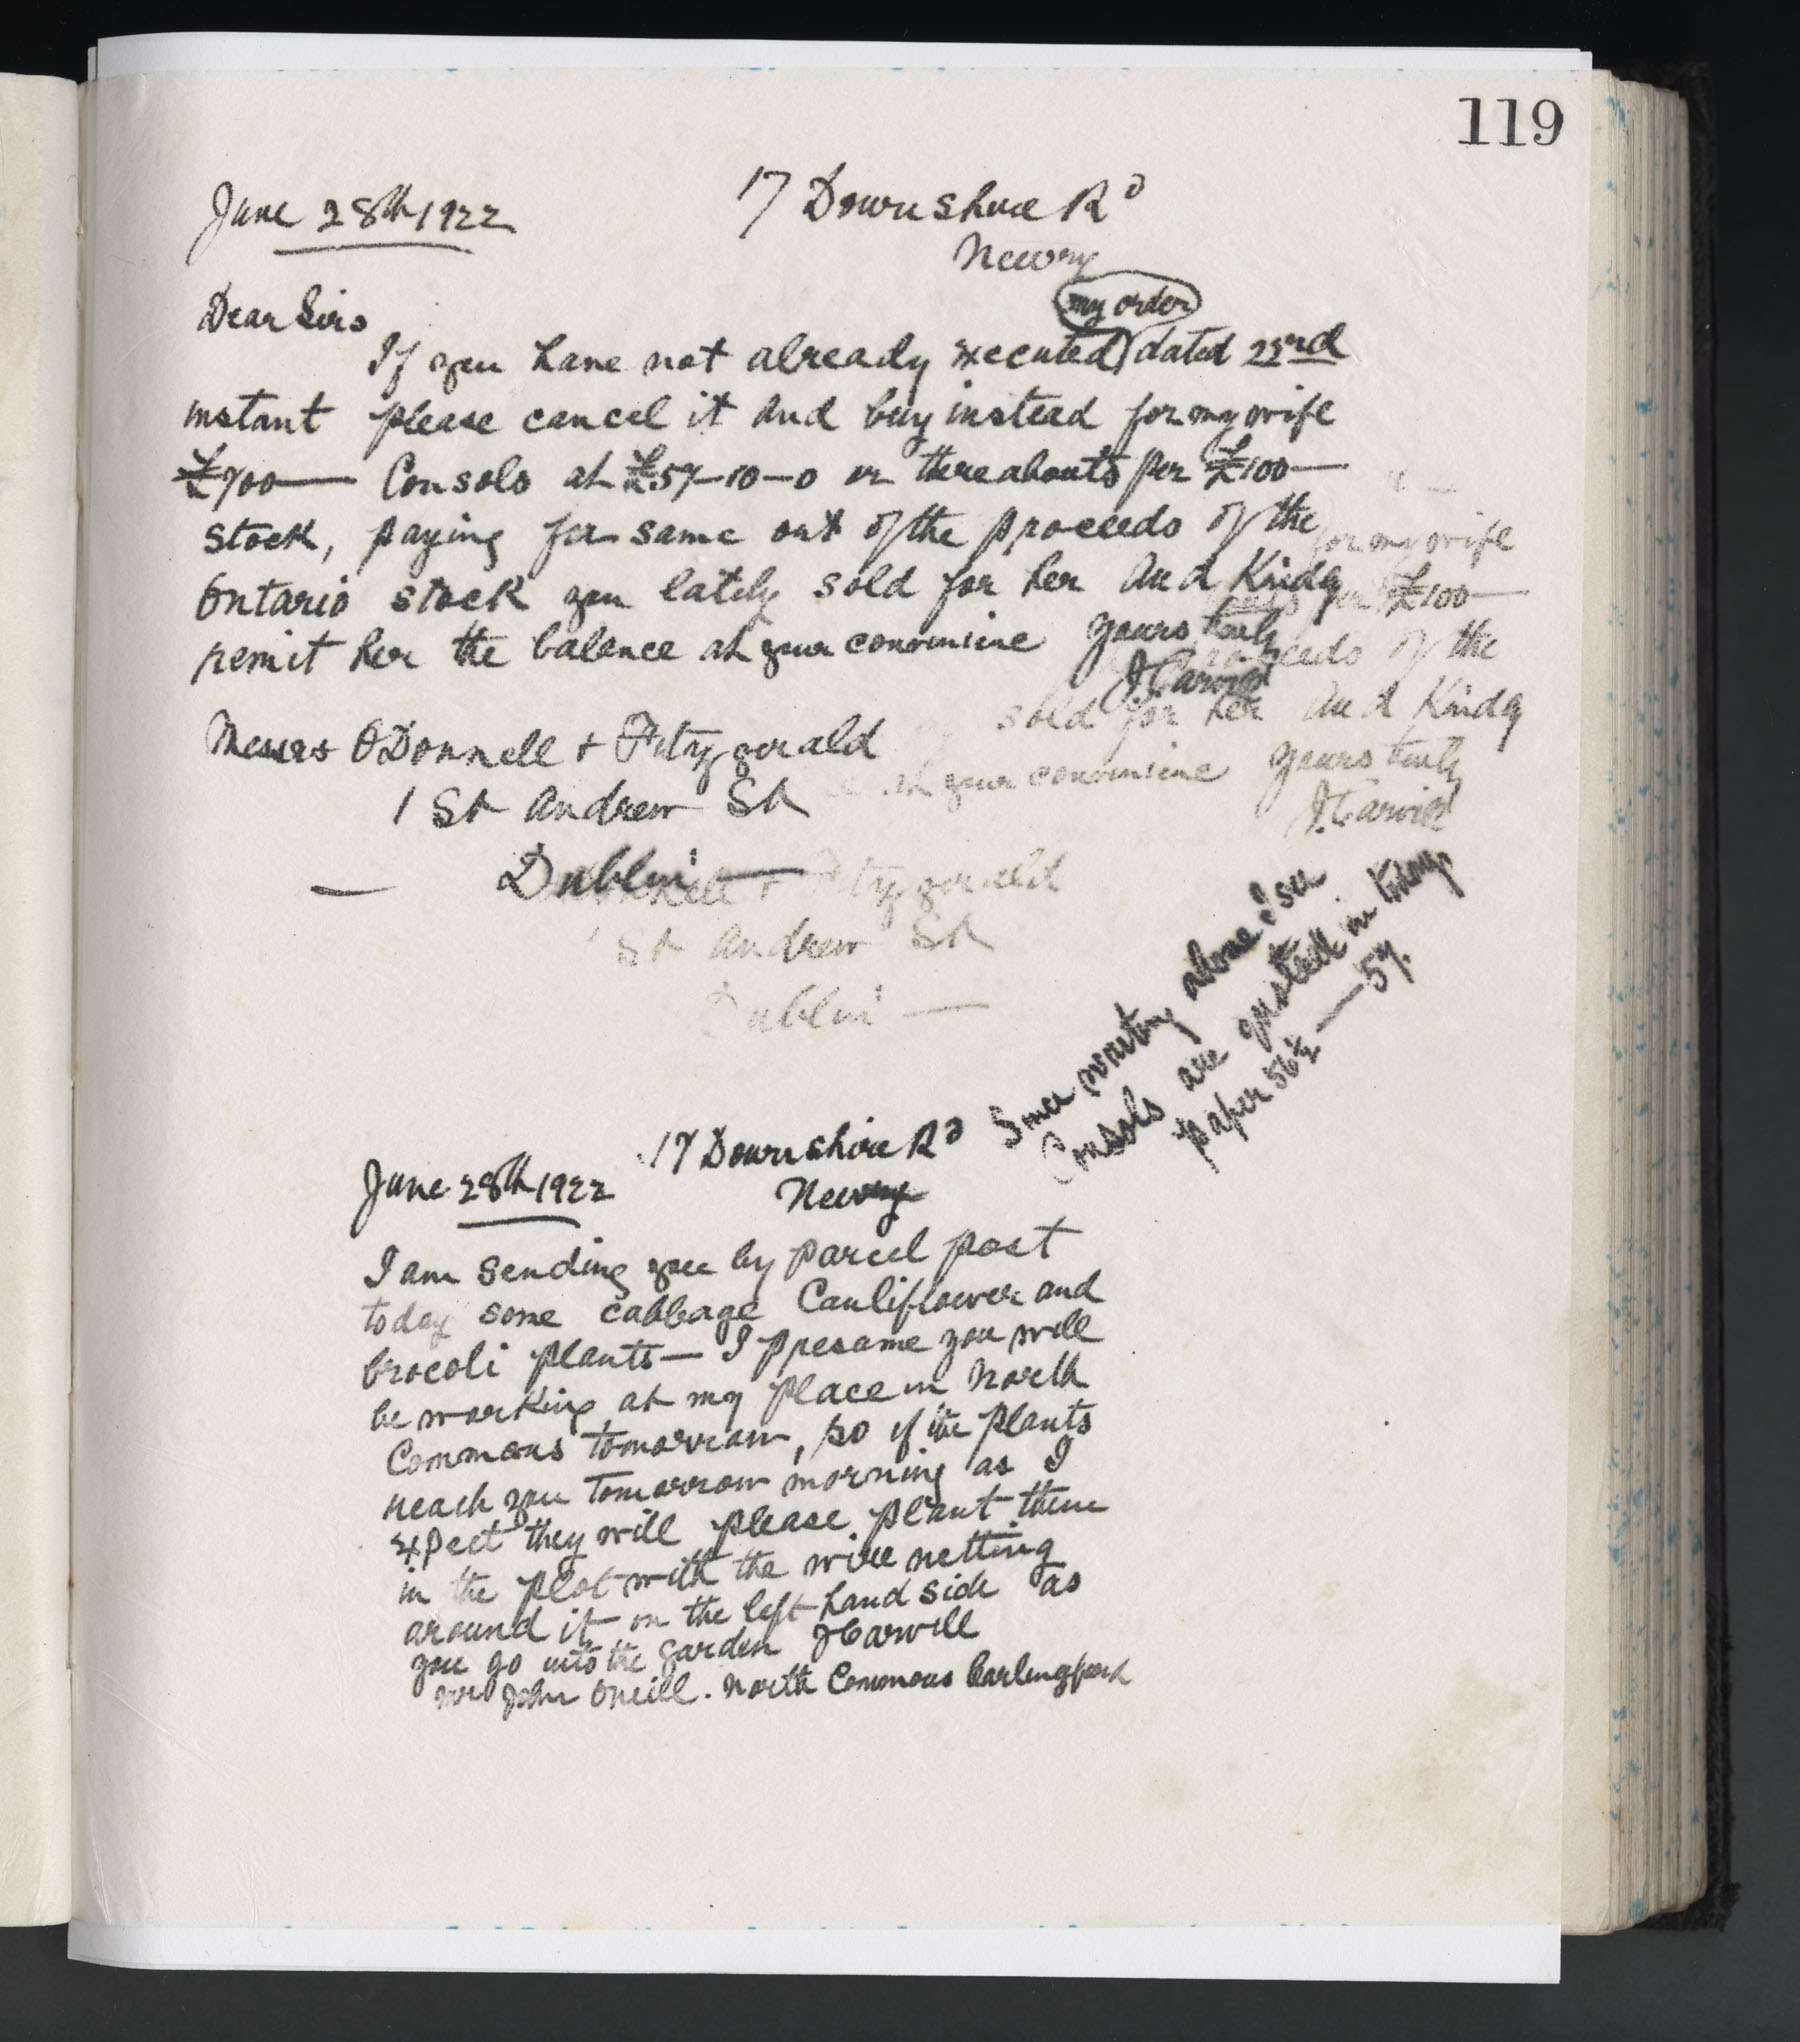 119
June 28th 1922
17 Downshire Rd
Newry
my order
Dear Sirs
If you have not already executed dated 23rd
instant please cancel it and buy instead for my wife
£700— Consols at £57-10-0 or thereabouts per £100—
stock, paying for same out of the proceeds of the
Ontario stock you lately sold for her and Kindly
remit her the balance at your convenience yours truly
J Carvill
Messrs O'Donnell + Fitzgerald
1 St Andrew St
Dublin —
for my wife
per £100—
proceeds of the
sold for her and Kindly
at your convenience yours truly
J. Carvill
Fitzgerald
St Andrew St
Dublin —
Since writing above I see
Consols are quoted in today's
paper 56½ — 57.
17 Downshire Rd
June 28th 1922
Newry
I am sending you by parcel post
today some cabbage Cauliflower and
brocoli plants — I presume you will
be working at my place in North
Commons tomorrow, so if the plants
reach you tomorrow morning as I
expect they will please plant them
in the plot with the wire netting
around it on the left hand side as
you go into the garden J Carvill
Mr John O'Neill. North Commons Carlingford